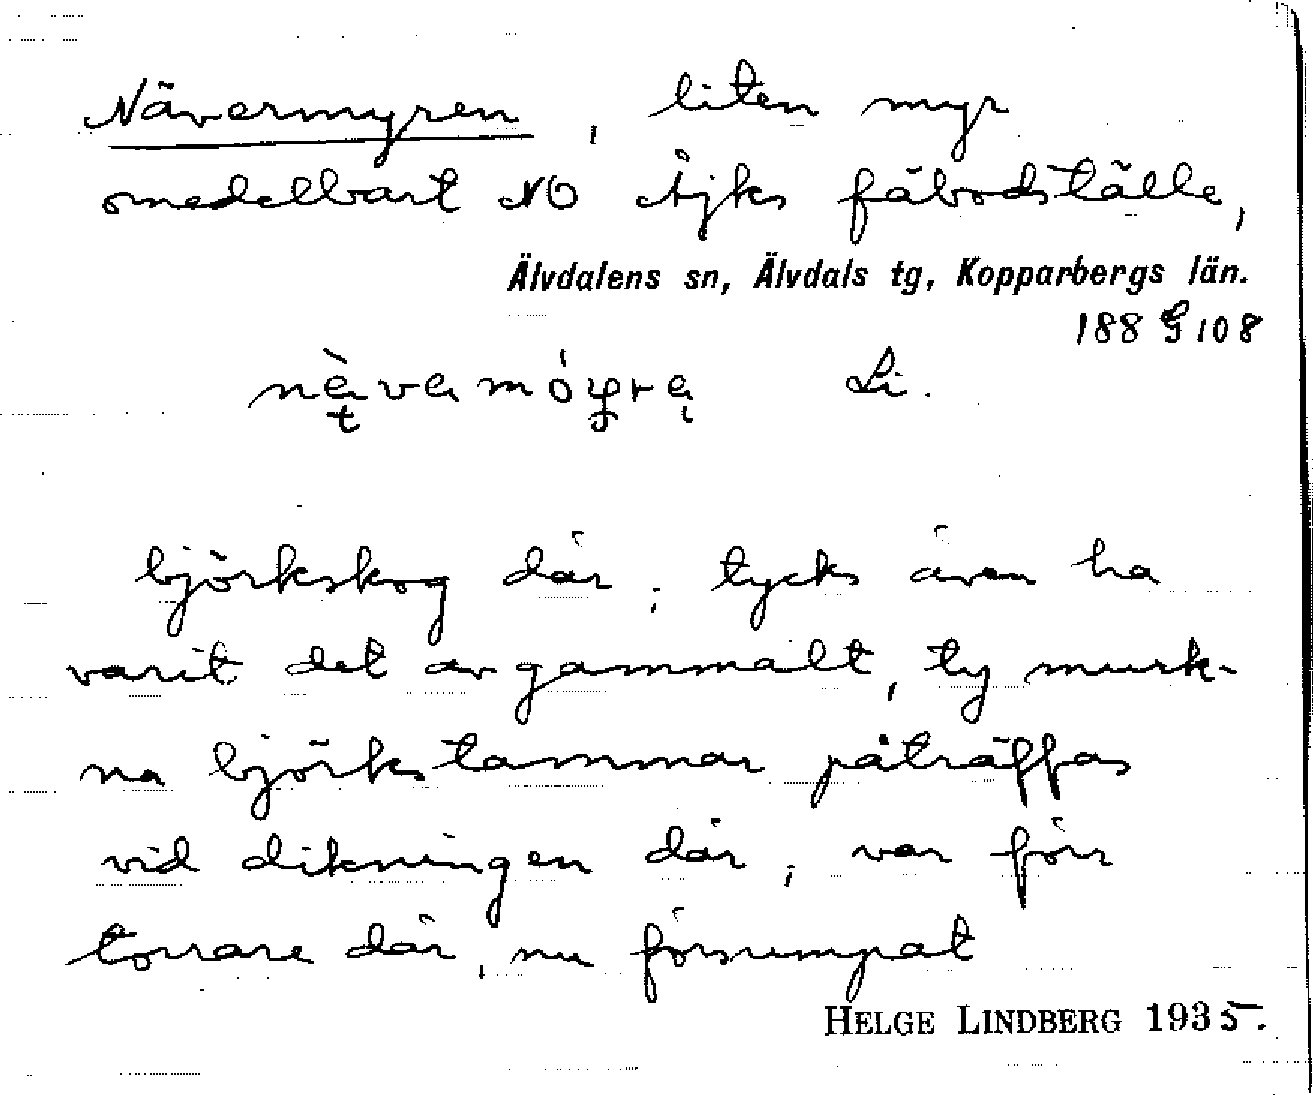 Nävermyren, liten myr
omedelbart NO Åjks fäbodställe,
Älvdalens sn, Älvdals tg, Kopparbergs län.
188 G 108
Li.
björkskog där; tycks även ha
varit det av gammalt, ty murk-
na björkstammar påträffas
vid dikningen där; var förr
torrare där, nu försumpat
HELGE LINDBERG 1935.